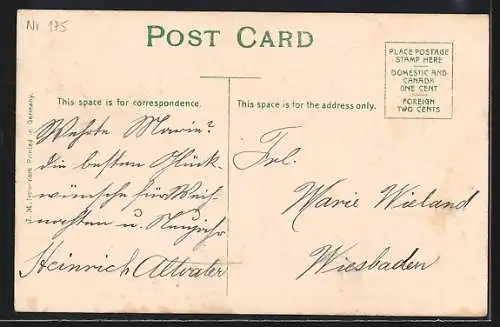 Nr 175
POST CARD
PLACE POSTAGE
STAMP HERE
DOMESTIC AND
CANADA
ONE CENT
FOREIGN
TWO CENTS
This space is for correspondence.
This space is for the address only.
Printed in Germany.
Werte Marie!
Die besten Glück-
wünsche für Weih-
nachten u. Neujahr
Heinrich Altvater
Frl.
Marie Wieland
Wiesbaden